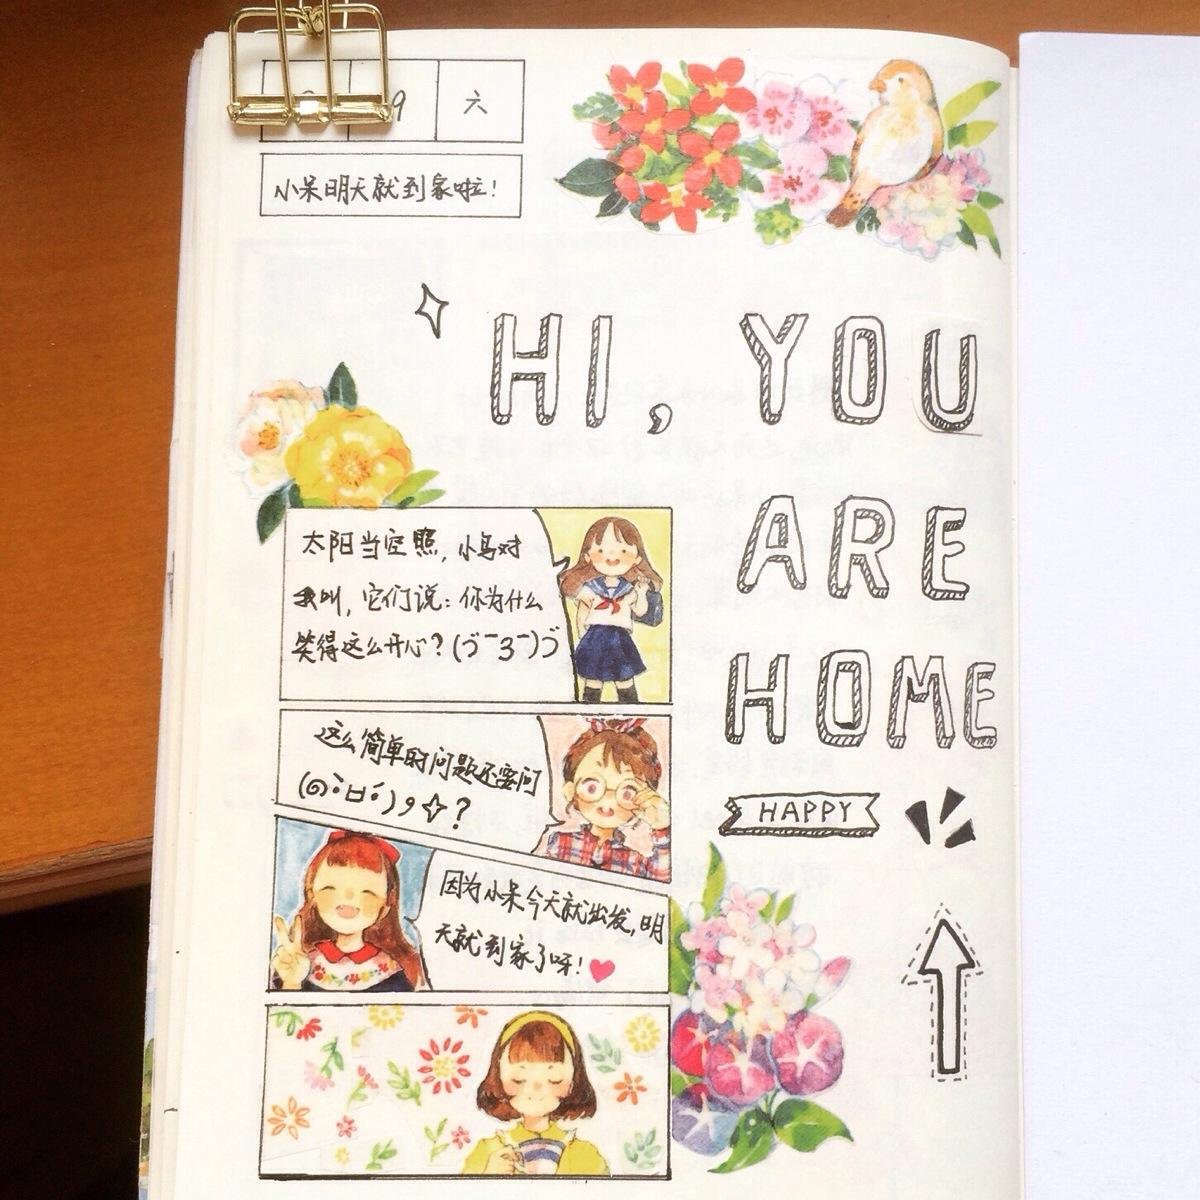 9 六
小呆明天就到家啦！
HI, YOU
ARE
HOME
HAPPY
太阳当空照，小鸟对
我叫，它们说：你为什么
笑得这么开心？(づ￣3￣)づ
这么简单的问题还要问
(๑•̀ㅂ•́)و✧？
因为小呆今天就出发，明
天就到家了呀！♥